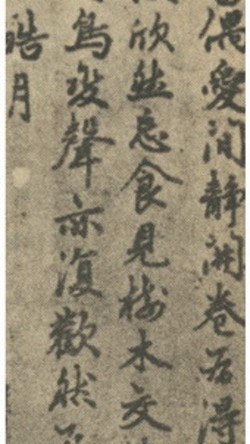 偶愛閑靜開卷有得
欣然忘食見樹木交
鳥變聲亦復歡然
皓月